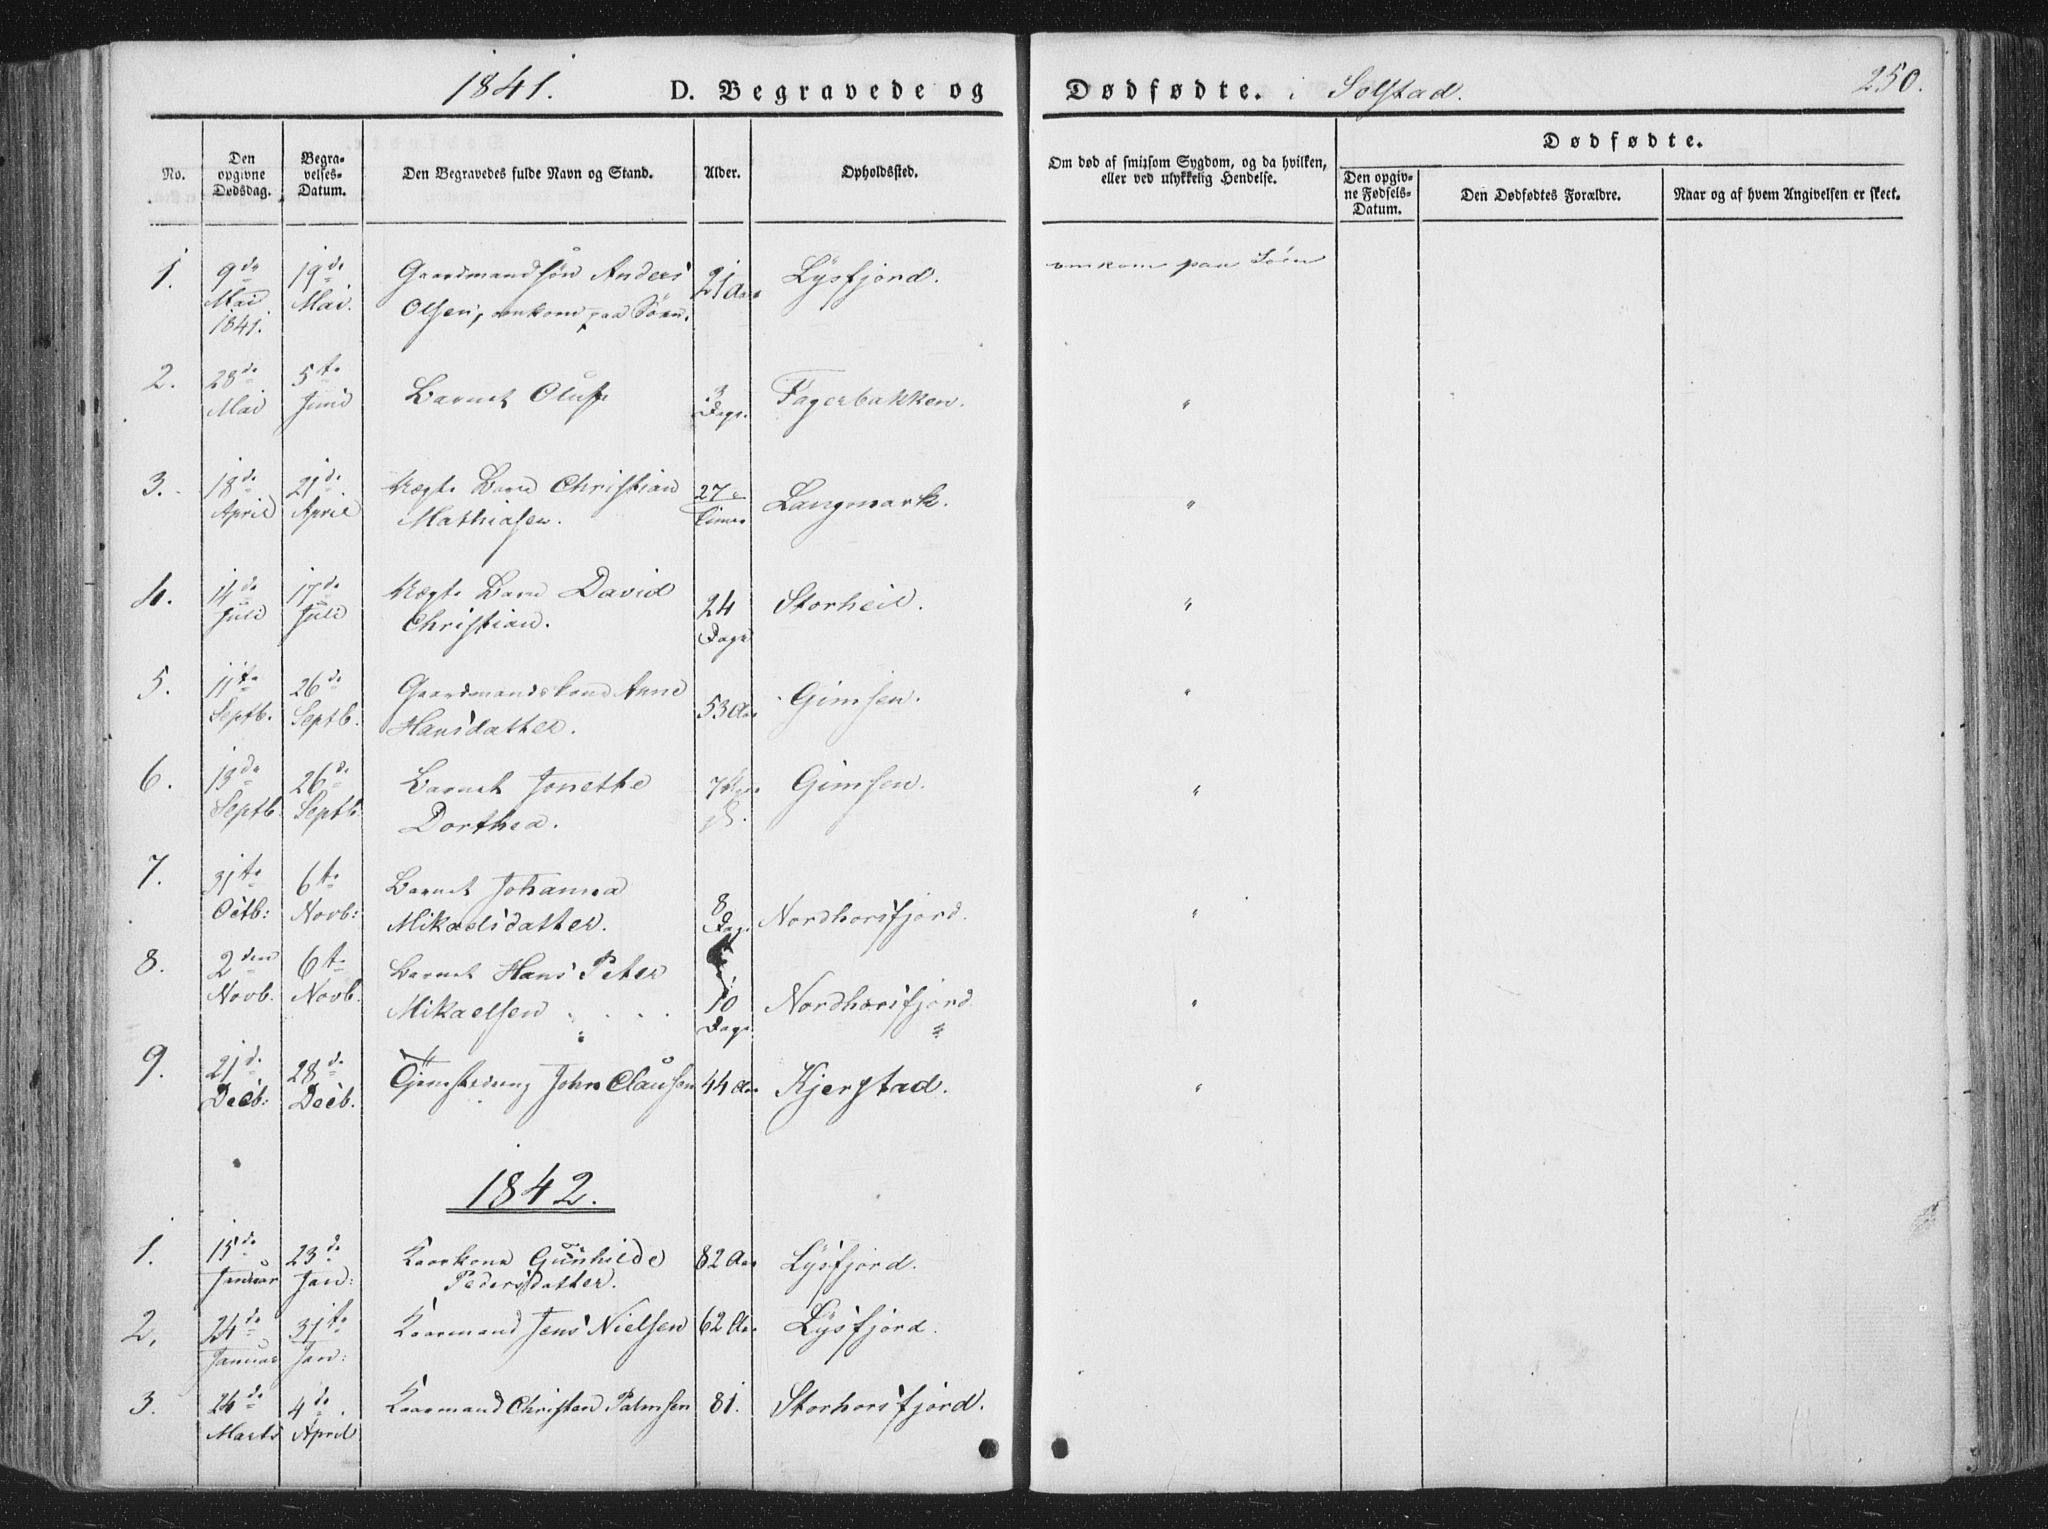 1841. D. Begravede og Dødfødte. i Solstad. 250.
No.
Den opgivne Dødsdag.
Begravelses-Datum.
Den Begravedes fulde Navn og Stand.
Alder.
Opholdssted.
Om død af smitsom Sygdom, og da hvilken, eller ved ulykkelig Hendelse.
Dødfødte.
Den opgivne Fødsels-Datum.
Den Dødfødtes Forældre.
Naar og af hvem Angivelsen er skeet.
1. 9de 19de Gaardmandsøn Anders 21 Aar Lysfjord. omkom paa Søen
Mai Mai. Olsen, omkom paa Søen.
1841.
2. 28de 5te Barnet Oluf 3 Fagerbakken. "
Mai Juni Dage.
3. 18de 21de Uægte Barn Christian 27 Langmark. "
April April Mathiasen. Timer
4. 14de 17de Uægte Barn David 24 Storheil. "
Juli Juli Christian. Dage
5. 11te 26de Gaardmandskone Anne 53 Aar Gimsen. "
Septb. Septb. Hansdatter.
6. 13de 26de Barnet Jonette 7 Gimsen. "
Septb. Septb. Dorthea.
7. 31te 6te Barnet Johanna 8 Nordhorsfjord. "
Octb: Novb: Mikaelsdatter. Dage
8. 2den 6te Barnet Hans Peter 10 Nordhorsfjord "
Novb. Novb. Mikaelsen Dage "
9. 21de 28de John Clausen 44 Aar Kjerstad. "
Decb: Decb.
1842.
1. 15de 23de Kaarkone Gunhilde 82 Aar Lysfjord.
Januar Jan: Pedersdatter.
2. 24de 31te Kaarmand Jens Nielsen 62 Aar Lysfjord.
Januar Jan:
3. 24de 4de Kaarmand Christen Palmsen 81. Storhorsfjord.
Marts April